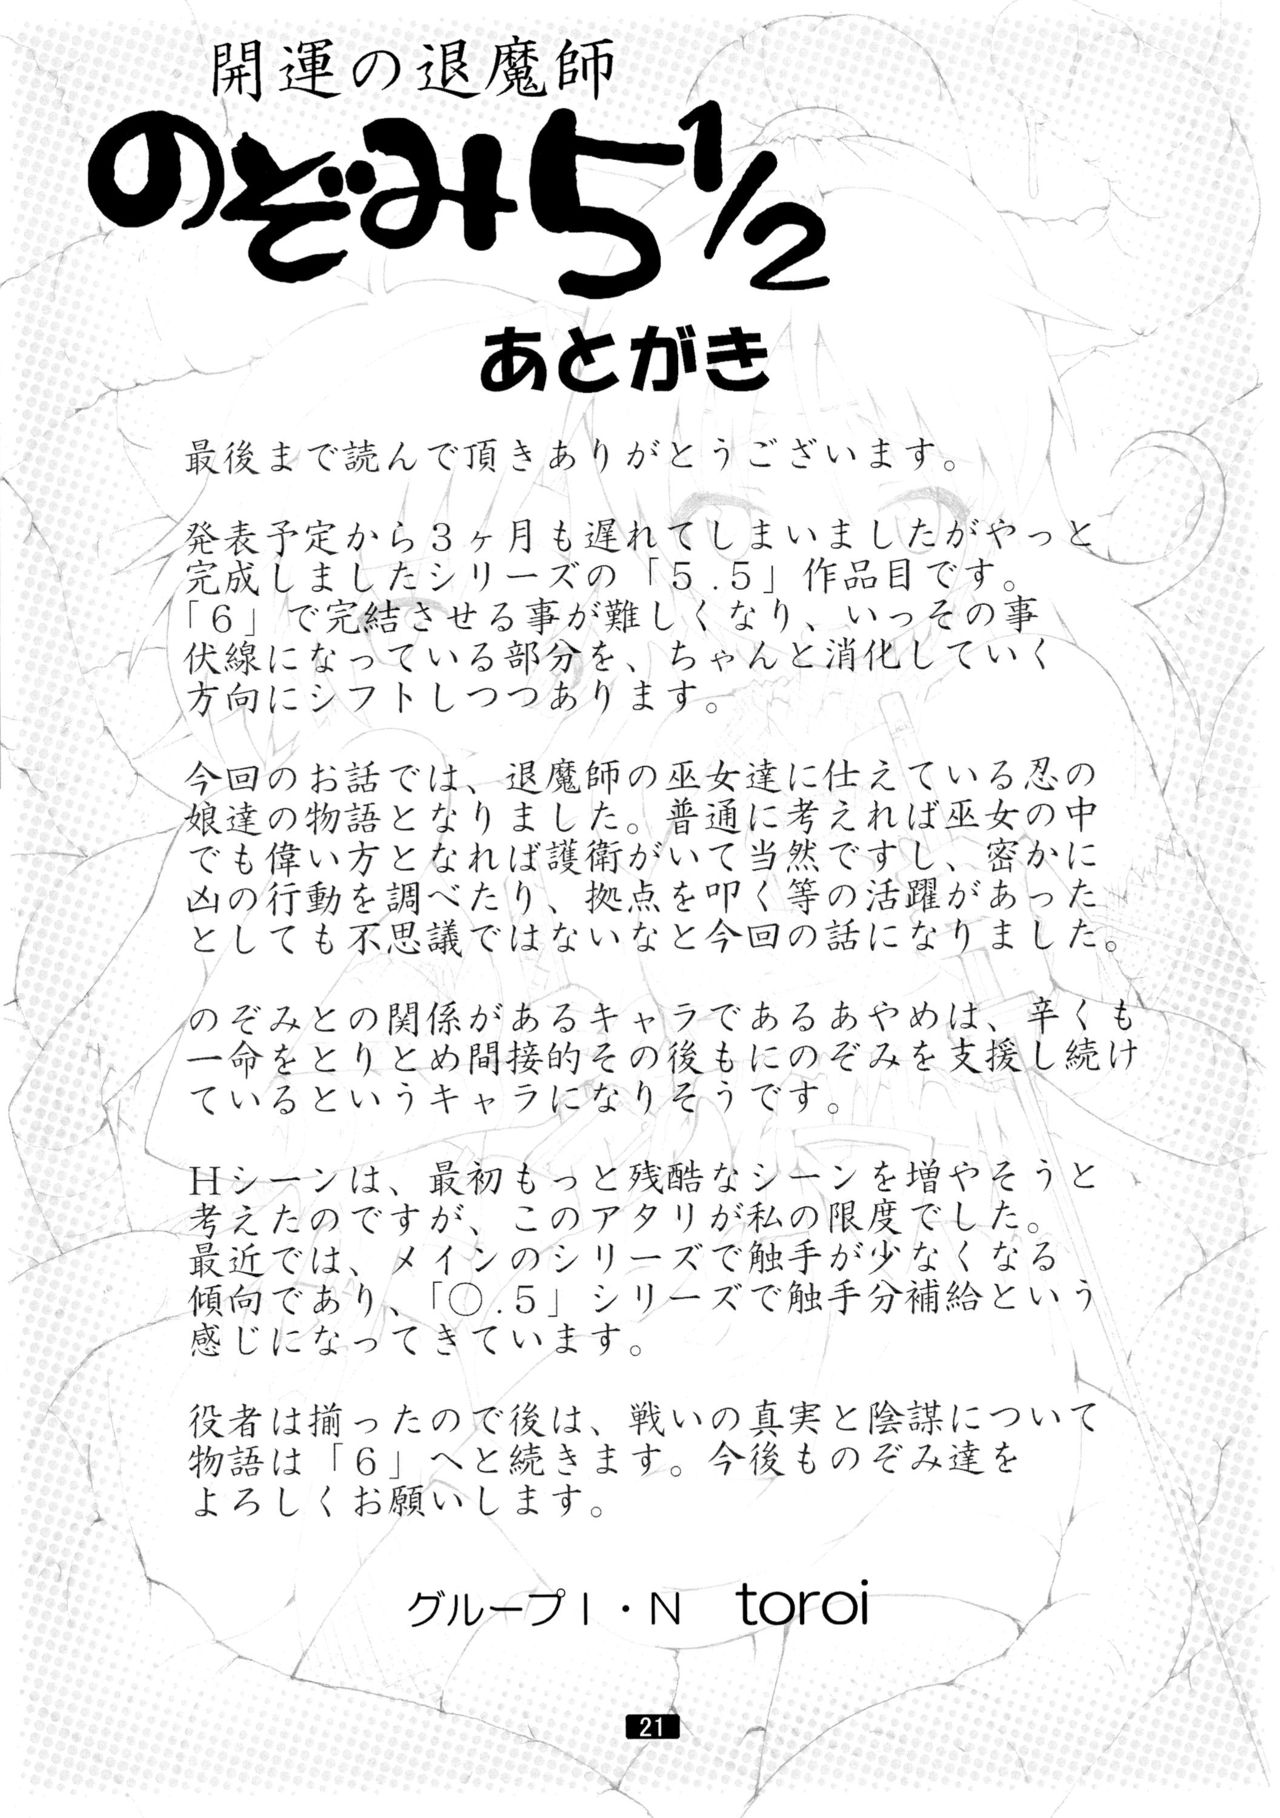 開運の退魔師
のぞみ5 1/2
あとがき
最後まで読んで頂きありがとうございます。
発表予定から３ヶ月も遅れてしまいましたがやっと
完成しましたシリーズの「５.５」作品目です。
「６」で完結させる事が難しくなり、いっその事
伏線になっている部分を、ちゃんと消化していく
方向にシフトしつつあります。
今回のお話では、退魔師の巫女達に仕えている忍の
娘達の物語となりました。普通に考えれば巫女の中
でも偉い方となれば護衛がいて当然ですし、密かに
凶の行動を調べたり、拠点を叩く等の活躍があった
としても不思議ではないなと今回の話になりました。
のぞみとの関係があるキャラであるあやめは、辛くも
一命をとりとめ間接的その後もにのぞみを支援し続け
ているというキャラになりそうです。
Ｈシーンは、最初もっと残酷なシーンを増やそうと
考えたのですが、このアタリが私の限度でした。
最近では、メインのシリーズで触手が少なくなる
傾向であり、「〇.５」シリーズで触手分補給という
感じになってきています。
役者は揃ったので後は、戦いの真実と陰謀について
物語は「６」へと続きます。今後ものぞみ達を
よろしくお願いします。
グループＩ・Ｎ　toroi
21